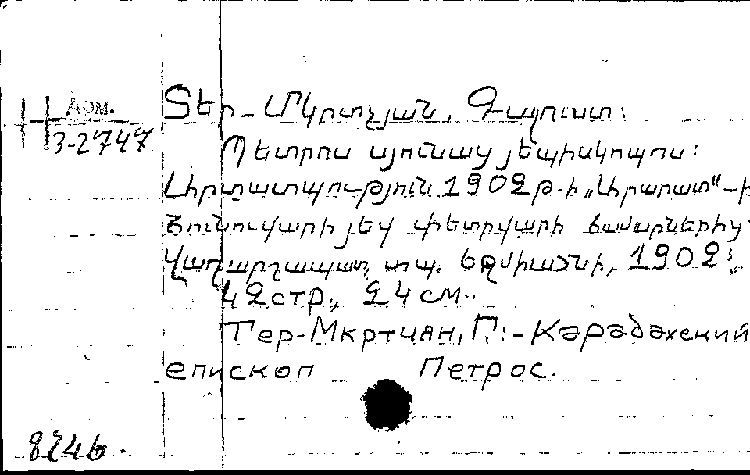 Арм.
3-2747
Տեր-Մկրտչյան, Գալուստ:
Պետրոս սյունյաց յեպիսկոպոս:
Արտատպություն 1902թ-ի „Արարատ“-ի
հունուվարի յեվ փետրվարի համարներից.
Վաղարշապատ, տպ. եջմիածնի, 1902,
42стр., 24см.
Тер-Мкртчян, Г.-Карабахский
епископ Петрос.
8246.